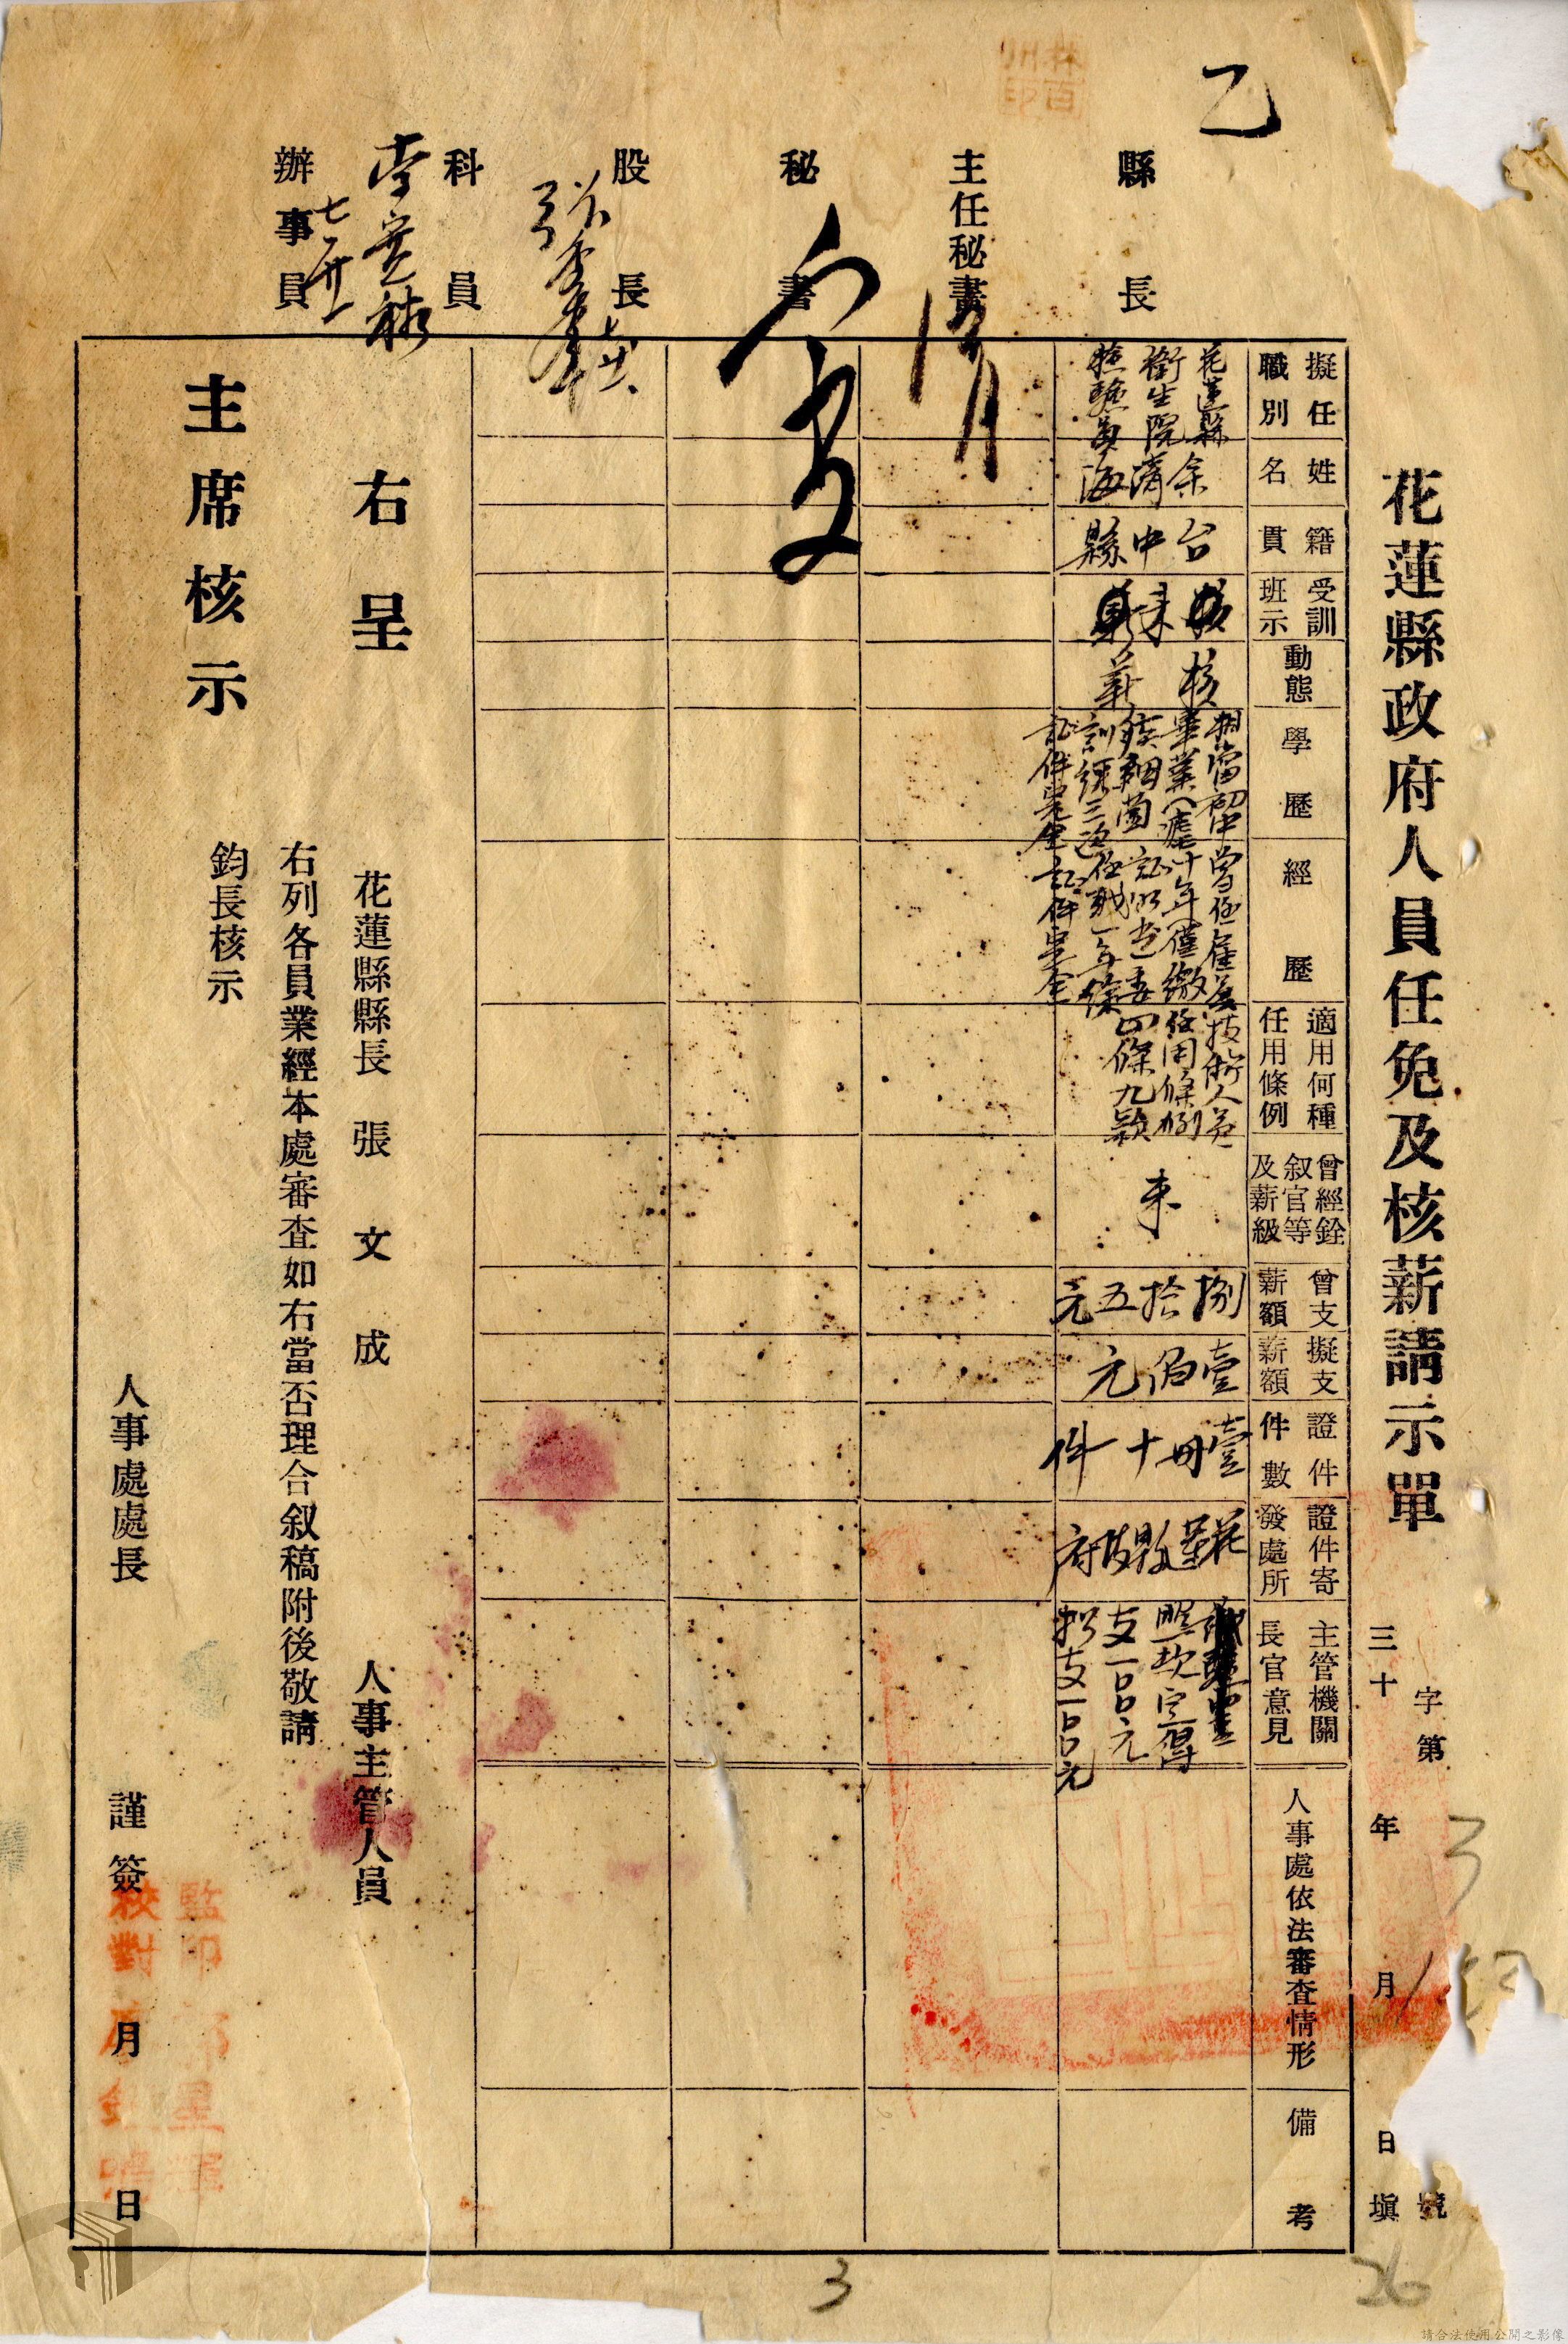 乙
花蓮縣政府人員任免及核薪請示單
字第 號
三十 年 月 日填
縣長
主任秘書
秘書
股長
科員
辦事員
擬任職別
花蓮縣
衛生院
檢驗員
姓名
余清海
籍貫
台中縣
受訓班示
動態
核薪
學歷
相當初中
畢業(瘧
疾細菌
訓練三
證件要全
經歷
曾任雇員
十年僅繳
證明書
任職一年
證件要全
適用何種任用條例
技術人員
任用條例
四條九款
曾經銓叙官等及薪級
未
曾支薪額
捌拾五元
擬支薪額
壹佰元
證件件數
壹冊十一件
證件寄發處所
花蓮縣政府
主管機關長官意見
支一〇〇元
擬支一〇〇元
人事處依法審査情形
備考
右呈
主席核示
花蓮縣縣長 張文成
人事主管人員
右列各員業經本處審査如右當否理合叙稿附後敬請
鈞長核示
人事處處長
謹簽 月 日
監印
校對
3
26
請合法使用公開之影像